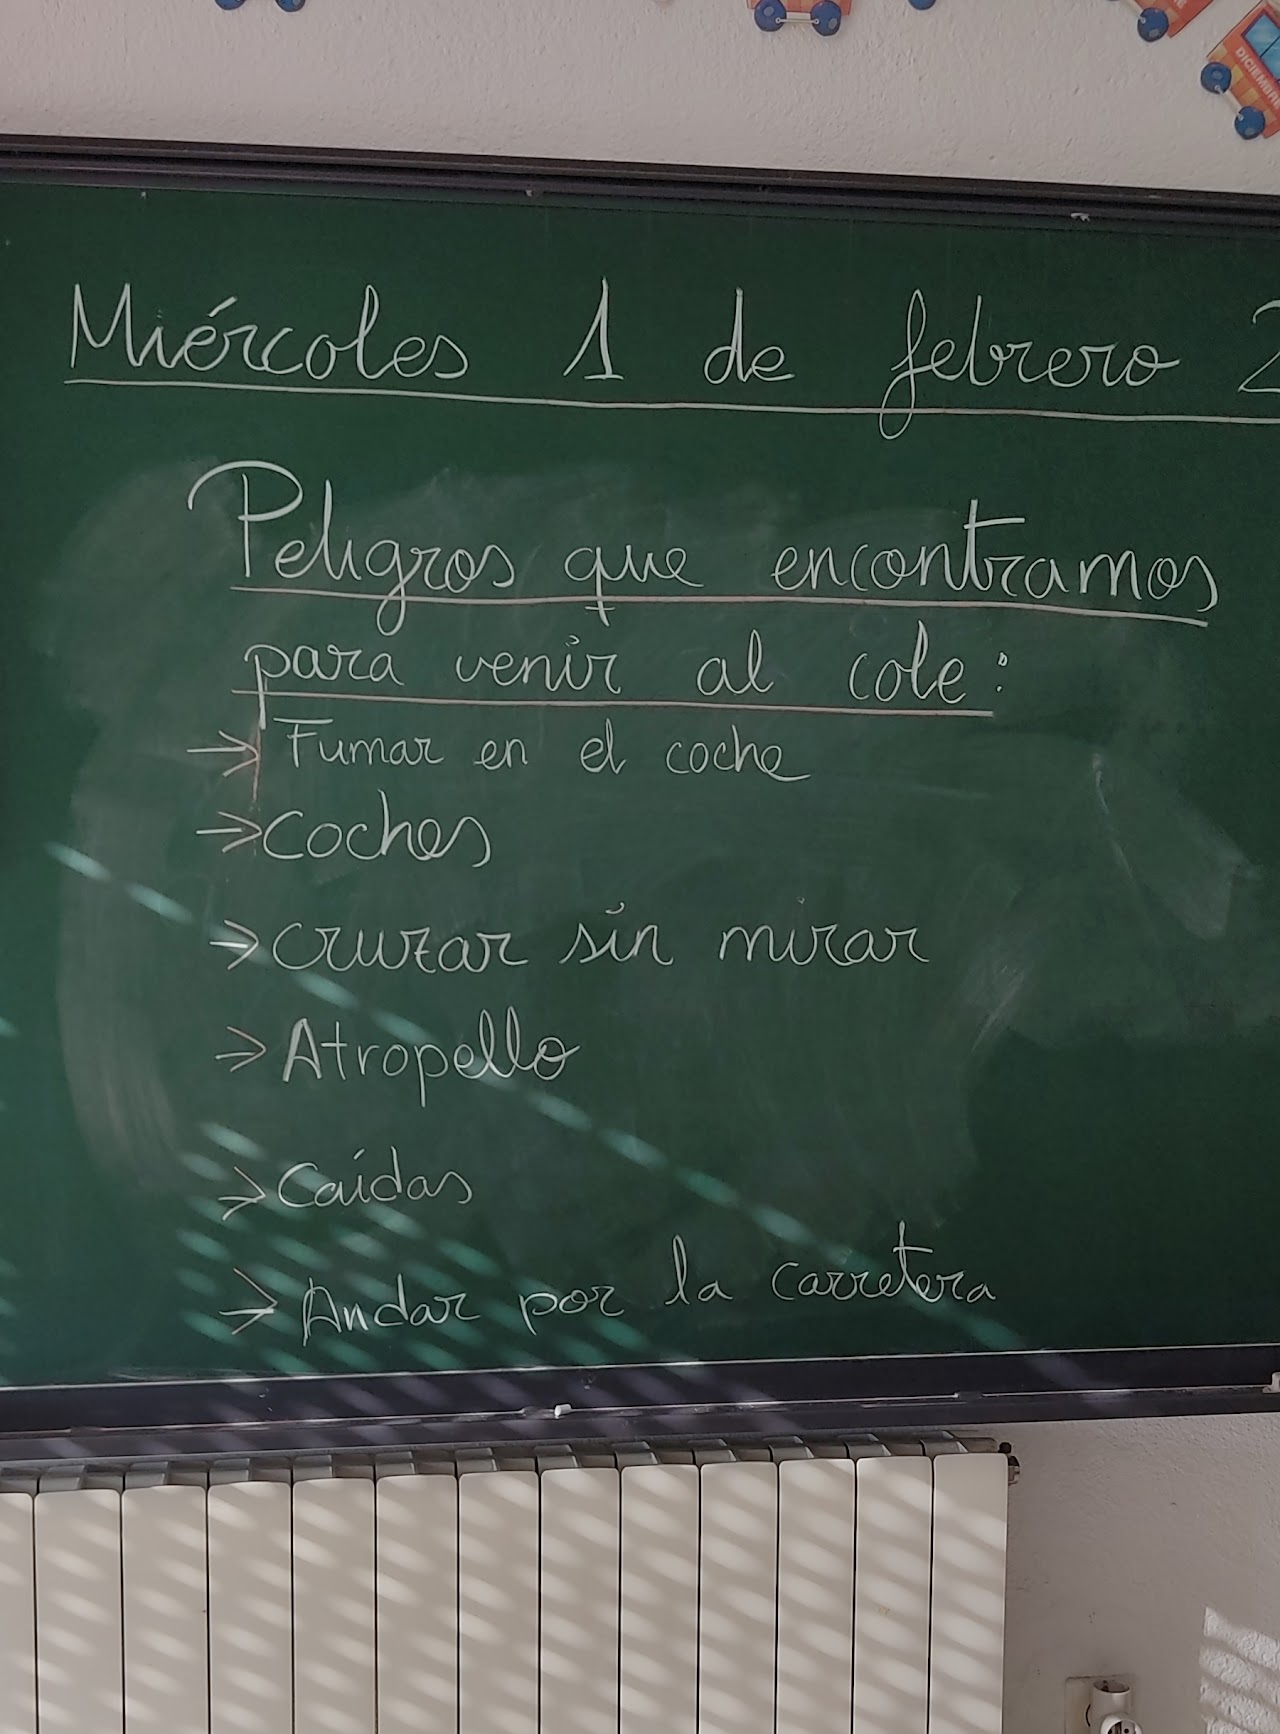 DICIEMBRE
Miércoles 1 de febrero 2
Peligros que encontramos
para venir al cole:
→ Fumar en el coche
→ Coches
→ Cruzar sin mirar
→ Atropello
→ Caídas
→ Andar por la carretera